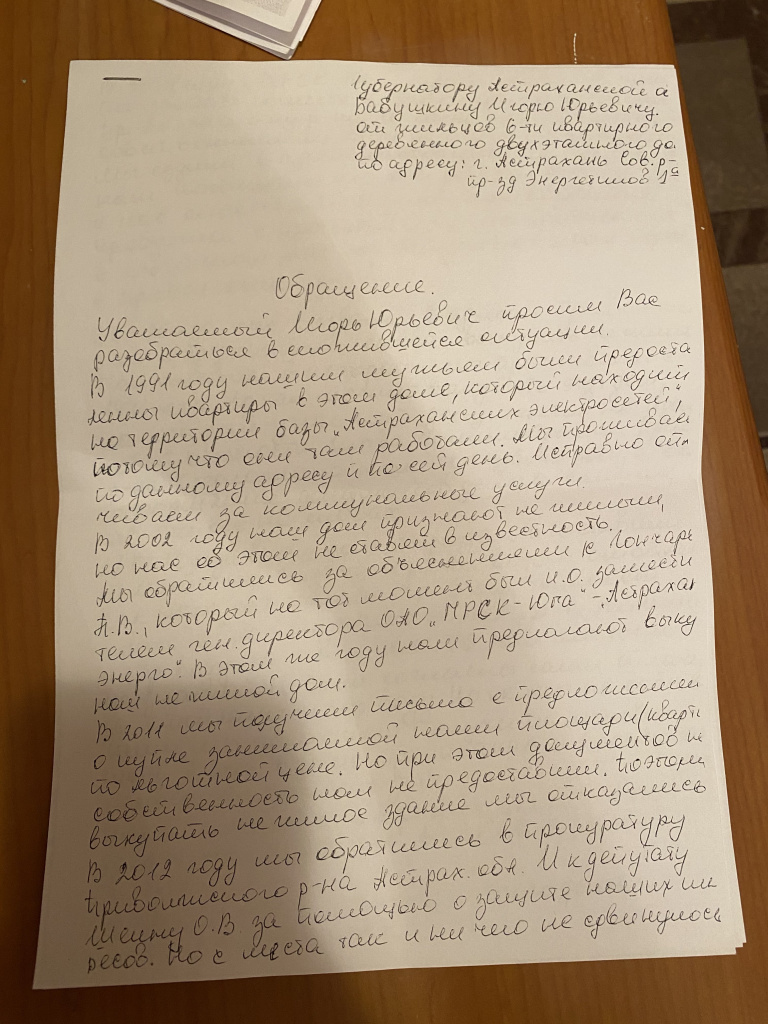 Губернатору Астраханской о
Бабушкину Игорю Юрьевичу.
от жильцов 6-ти квартирного
деревянного двухэтажного до.
по адресу: г. Астрахань Сов. р-
пр-зд Энергетиков 1а
Обращение.
Уважаемый Игорь Юрьевич просим Вас
разобраться в сложившейся ситуации.
В 1991 году нашим мужьям были предоста
ленны квартиры в этом доме, который находит
на территории базы „Астраханских электросетей",
потому что они там работали. Мы проживаем
по данному адресу и по сей день. Исправно опл
чиваем за коммунальные услуги.
В 2002 году наш дом признают не жилым,
но нас об этом не ставят в известность.
Мы обратились за объяснениями к Гончар
А.В., который на тот момент был и.о. замести
телем ген. директора ОАО „МРСК-Юга"-„Астрахан
энерго". В этом же году нам предлагают выку
наш не жилой дом.
В 2011 мы получили письмо с предложением
о купле занимаемой нами площади (кварти
по льготной цене. Но при этом документов н
собственность нам не предоставили. Поэтому
выкупать не жилое здание мы отказались
В 2012 году мы обратились в прокуратуру
Приволжского р-на Астрах. обл. И к депутату
Шеину О.В. за помощью о защите наших ин
ресов. Но с места так и ни чего не сдвинулось